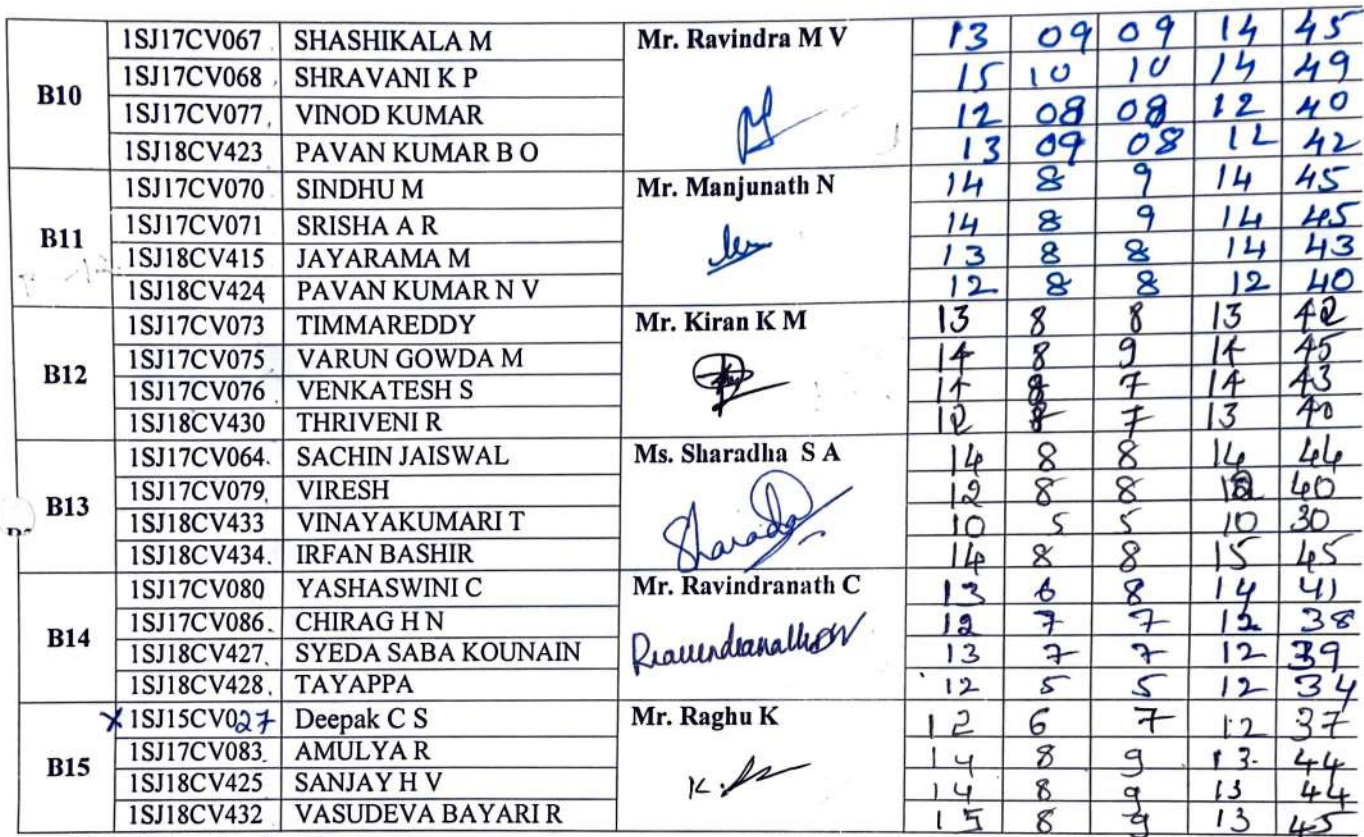 B10 1SJ17CV067 SHASHIKALA M Mr. Ravindra M V 13 09 09 14 45
1SJ17CV068 SHRAVANI K P 15 10 10 14 49
1SJ17CV077 VINOD KUMAR 12 08 08 12 40
1SJ18CV423 PAVAN KUMAR B O 13 09 08 12 42
B11 1SJ17CV070 SINDHU M Mr. Manjunath N 14 8 9 14 45
1SJ17CV071 SRISHA A R 14 8 9 14 45
1SJ18CV415 JAYARAMA M 13 8 8 14 43
1SJ18CV424 PAVAN KUMAR N V 12 8 8 12 40
B12 1SJ17CV073 TIMMAREDDY Mr. Kiran K M 13 8 8 13 42
1SJ17CV075 VARUN GOWDA M 14 8 9 14 45
1SJ17CV076 VENKATESH S 14 8 7 14 43
1SJ18CV430 THRIVENI R 12 8 7 13 40
B13 1SJ17CV064 SACHIN JAISWAL Ms. Sharadha S A 14 8 8 14 44
1SJ17CV079 VIRESH 12 8 8 12 40
1SJ18CV433 VINAYAKUMARI T Sharada 10 5 5 10 30
1SJ18CV434 IRFAN BASHIR 14 8 8 15 45
B14 1SJ17CV080 YASHASWINI C Mr. Ravindranath C 13 6 8 14 41
1SJ17CV086 CHIRAG H N 12 7 7 12 38
1SJ18CV427 SYEDA SABA KOUNAIN 13 7 7 12 39
1SJ18CV428 TAYAPPA 12 5 5 12 34
B15 X 1SJ15CV027 Deepak C S Mr. Raghu K 12 6 7 12 37
1SJ17CV083 AMULYA R 14 8 9 13 44
1SJ18CV425 SANJAY H V 14 8 9 13 44
1SJ18CV432 VASUDEVA BAYARI R 15 8 9 13 45